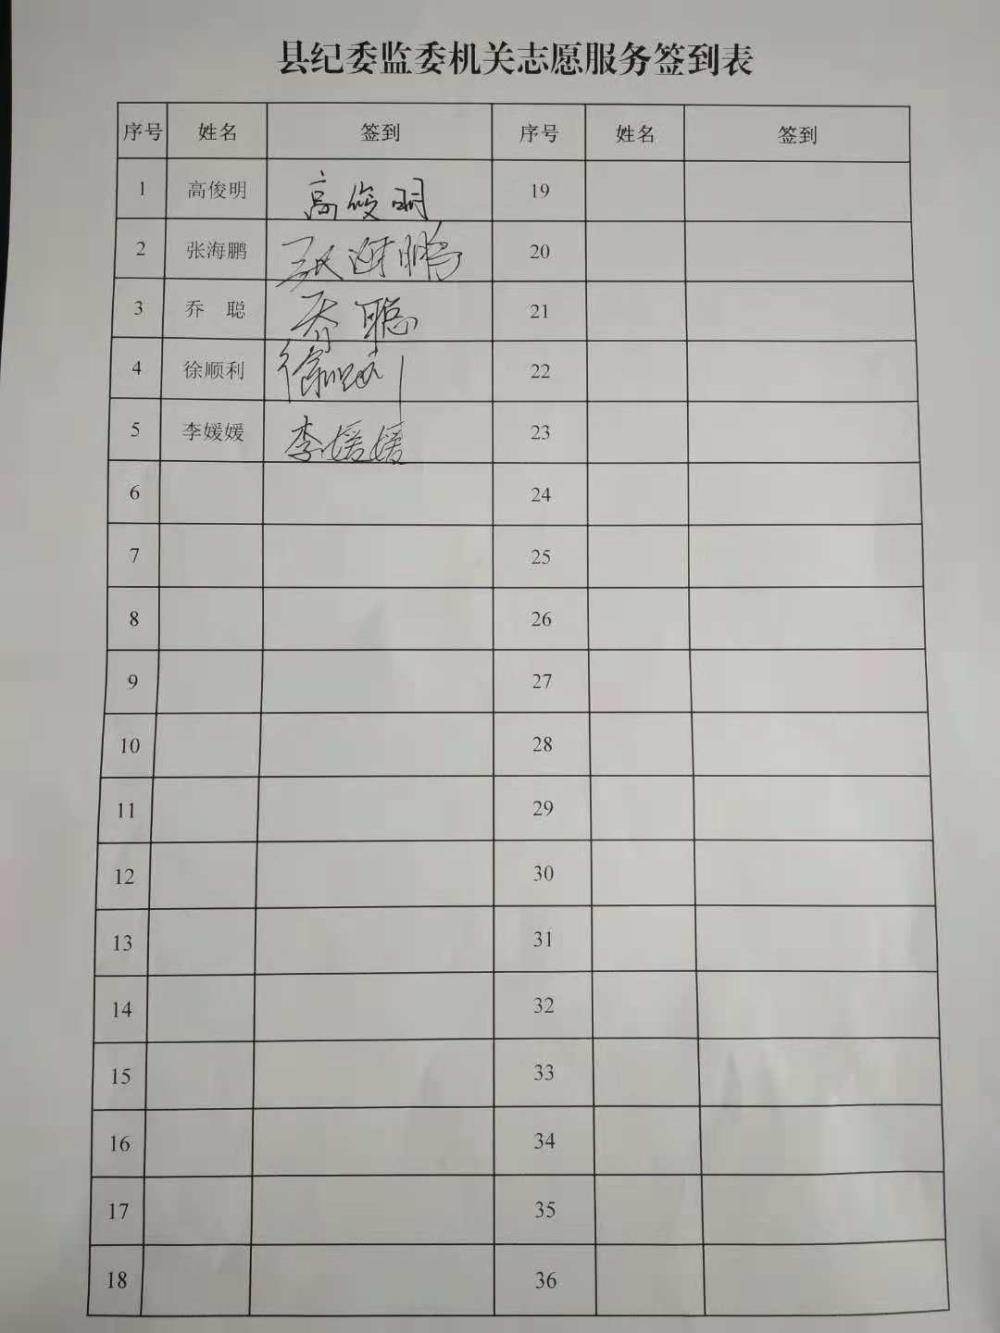 县纪委监委机关志愿服务签到表
序号 姓名 签到 序号 姓名 签到
1 高俊明 高俊明 19
2 张海鹏 张海鹏 20
3 乔 聪 乔聪 21
4 徐顺利 徐顺利 22
5 李媛媛 李媛媛 23
6 24
7 25
8 26
9 27
10 28
11 29
12 30
13 31
14 32
15 33
16 34
17 35
18 36